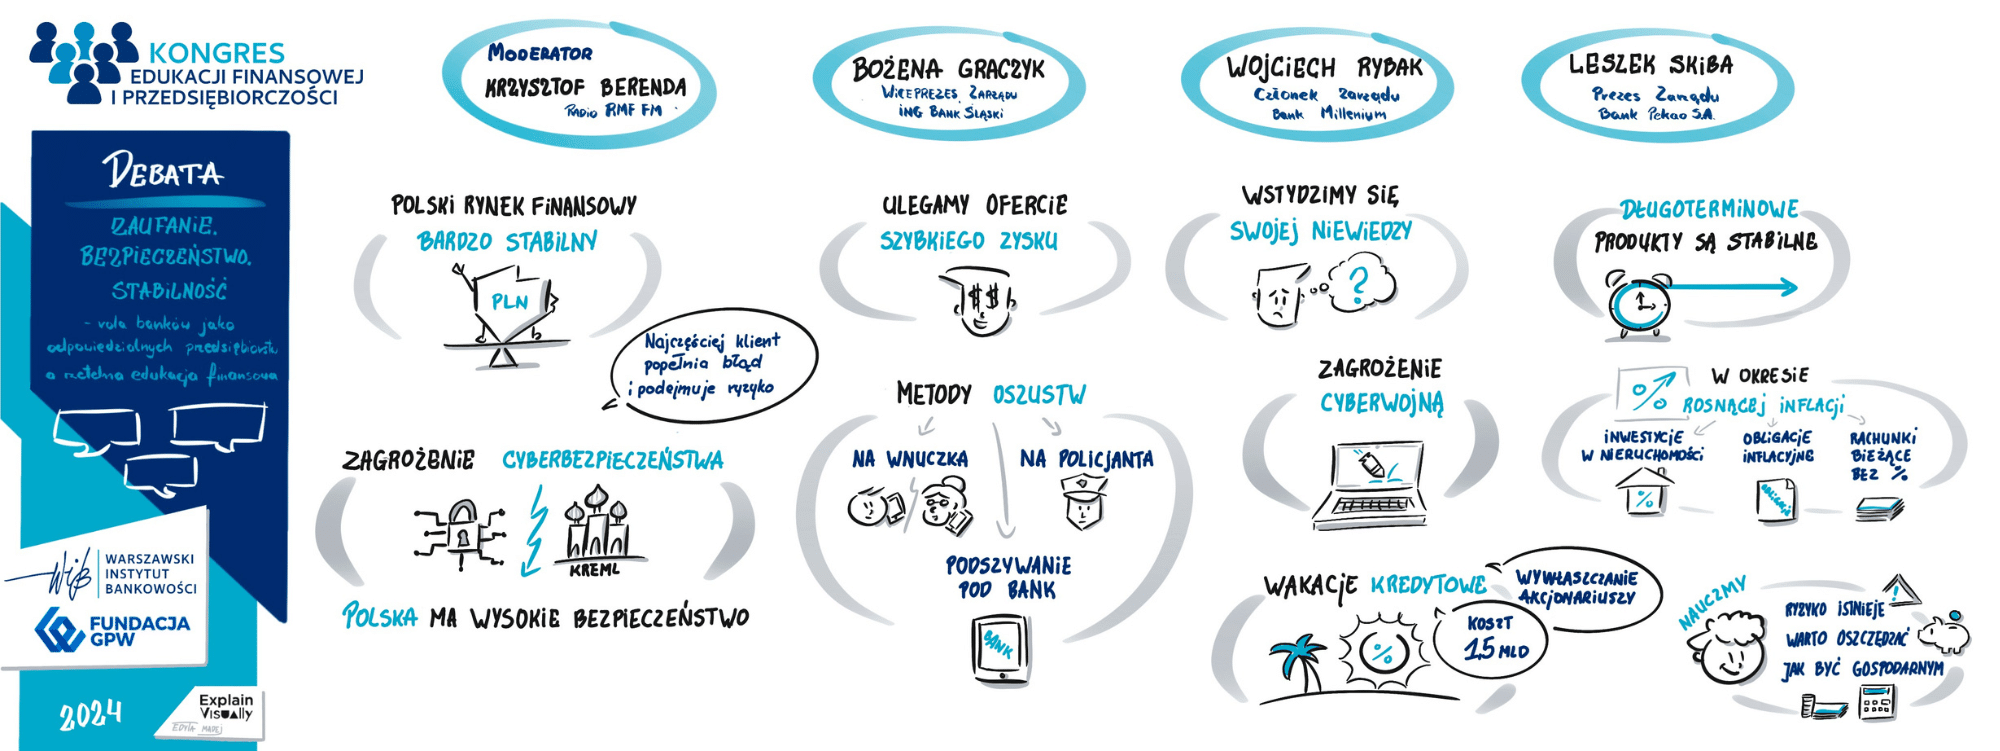 KONGRES
EDUKACJI FINANSOWEJ
I PRZEDSIĘBIORCZOŚCI
DEBATA
ZAUFANIE.
BEZPIECZEŃSTWO.
STABILNOŚĆ
- rola banków jako
odpowiedzialnych przedsiębiorstw
a rzetelna edukacja finansowa
WIB
WARSZAWSKI
INSTYTUT
BANKOWOŚCI
FUNDACJA
GPW
2024
Explain
Visually
EDYTA MADEJ
MODERATOR
KRZYSZTOF BERENDA
RADIO RMF FM
POLSKI RYNEK FINANSOWY
BARDZO STABILNY
PLN
Najczęściej klient
popełnia błąd
i podejmuje ryzyko
ZAGROŻENIE CYBERBEZPIECZEŃSTWA
KREML
POLSKA MA WYSOKIE BEZPIECZEŃSTWO
BOŻENA GRACZYK
WICEPREZES ZARZĄDU
ING BANK ŚLĄSKI
ULEGAMY OFERCIE
SZYBKIEGO ZYSKU
$ $
METODY OSZUSTW
NA WNUCZKA
NA POLICJANTA
PODSZYWANIE
POD BANK
BANK
WOJCIECH RYBAK
Członek Zarządu
Bank Millenium
WSTYDZIMY SIĘ
SWOJEJ NIEWIEDZY
?
ZAGROŻENIE
CYBERWOJNĄ
WAKACJE KREDYTOWE
WYWŁASZCZANIE
AKCJONARIUSZY
KOSZT
1,5 MLD
%
LESZEK SKIBA
Prezes Zarządu
Bank Pekao S.A.
DŁUGOTERMINOWE
PRODUKTY SĄ STABILNE
%
W OKRESIE
ROSNĄCEJ INFLACJI
INWESTYCJE
W NIERUCHOMOŚCI
%
OBLIGACJE
INFLACYJNE
RACHUNKI
BIEŻĄCE
BEZ %
NAUCZMY
!
RYZYKO ISTNIEJE
WARTO OSZCZĘDZAĆ
JAK BYĆ GOSPODARNYM